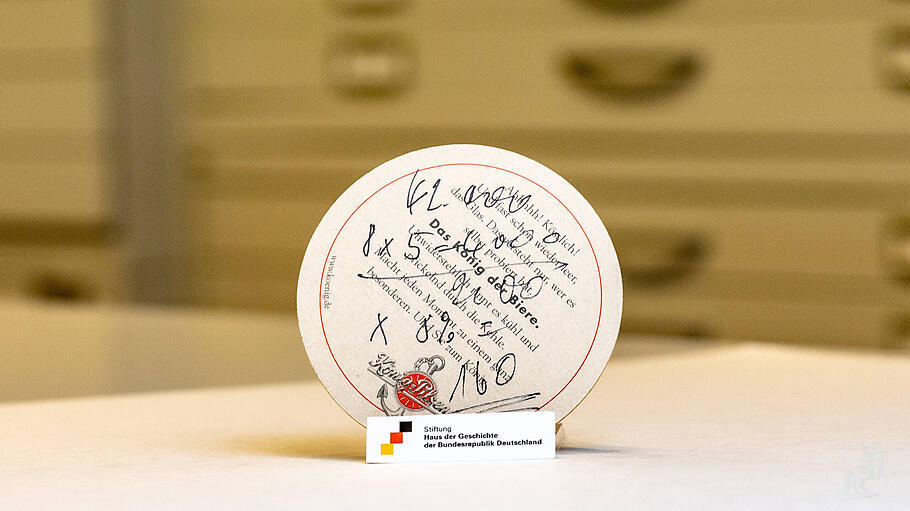 Köstlich!
fast schon wieder leer,
das Glas. Das versteht nur, wer es
selbst probiert hat.
Das König der Biere.
Unwiderstehlich rinnt es kühl und
prickelnd durch die Kehle.
Macht jeden Moment zu einem
besonderen. Und Sie zum König
www.koenig.de
8 x 5
x 8%
160
König-Pilsener
Stiftung
Haus der Geschichte
der Bundesrepublik Deutschland